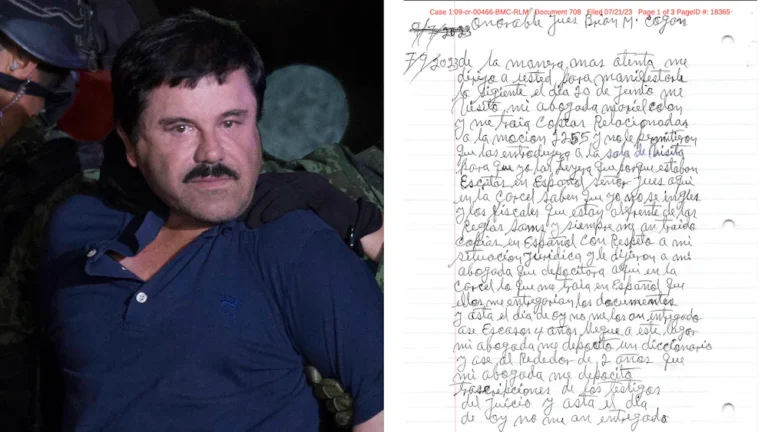 Case 1:09-cr-00466-BMC-RLM Document 708 Filed 07/21/23 Page 1 of 3 PageID #: 18365
Onorable Jues Brian M. Cogan
7/9/2023 de la manera mas atenta me
dirijo a usted para manifestarle
lo sigiente el dia 29 de Junio me
visito, mi abogada mariel colon
y me traia Copias Relacionadas
a la mocion 2255 y no le permitieron
que las introdujera a la sala de Visita
para que yo las leyera que porque estaban
Escritas en Español señor Jues aqui
en la Carcel saben que yo no se ingles
y los Fiscales que estan al frente de las
Reglas Sams y siempre me an traido
copias en Español Con Respeto a mi
situacion Juridica y le dijeron a mi
abogada que depocitara aqui en la
carcel lo que me traia en Español que
ellos me entregarian los documentos
y asta el dia de oy no me los an entregado
ase Escasos 4 años llegue a este lugar
mi abogada me depocito un diccionario
y ase al Rededor de 2 años que
mi abogada me depocito
trascripciones de los testigos
del Juicio y asta el dia
de oy no me an entregado